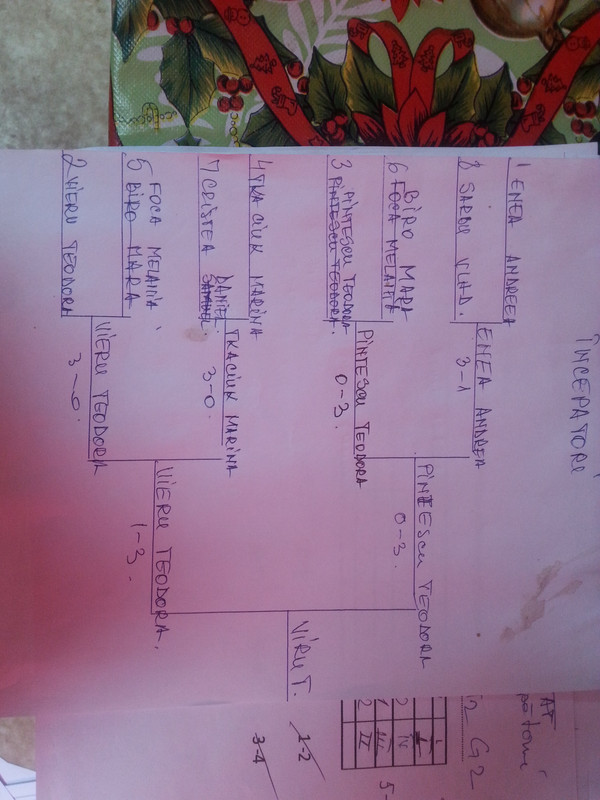 ÎNCEPĂTORI
1 ENEA ANDREEA
8 SARBU VLAD.
ENEA ANDREEA
3-1
BIRO MARA
6 FOCA MELANIA
PINTESCU TEODORA
3 PINTESCU TEODORA
PINTESCU TEODORA
0-3.
PINTESCU TEODORA
0-3.
4 TKACIUK MARINA
DANIEL
7 CRISTEA SAMUEL
TKACIUK MARINA
3-0.
FOCA MELANIA
5 BIRO MARA
2 VIERU TEODORA
VIERU TEODORA
3-0.
VIERU TEODORA.
1-3.
VIRU T.
1-2
3-4
G2
IV
III
II
5-